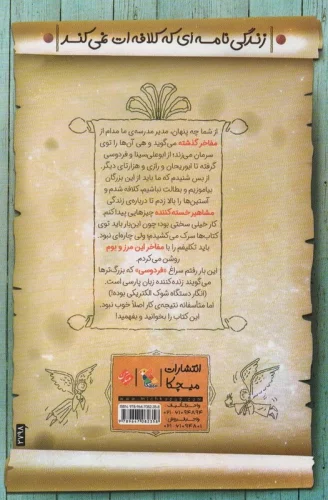 زندگی نامه ای که کلافه ات نمی کند
از شما چه پنهان، مدیر مدرسه‌ی ما مدام از
مفاخر گذشته می‌گوید و هی آن‌ها را توی
سرمان می‌زند؛ از ابوعلی‌سینا و فردوسی
گرفته تا ابوریحان و رازی و هزارتای دیگر.
از بس شنیدم که ما باید از این بزرگان
بیاموزیم و بطالت نباشیم، کلافه شدم و
آستین‌ها را بالا زدم تا درباره‌ی زندگی
مشاهیر خسته‌کننده چیزهایی پیدا کنم.
کار خیلی سختی بود؛ چون این‌بار باید توی
کتاب‌ها سرک می‌کشیدم؛ ولی چاره‌ای نبود.
باید تکلیفم را با مفاخر این مرز و بوم
روشن می‌کردم.
این بار رفتم سراغ «فردوسی» که بزرگ‌ترها
می‌گویند زنده کننده زبان پارسی است.
(انگار دستگاه شوک الکتریکی بوده!)
اما متأسفانه نتیجه‌ی کار اصلاً خوب نبود.
این کتاب را بخوانید و بفهمید!
انتشارات
میچکا
۰۲۱-۷۱۰۹۴۸۹۴
۰۲۱-۷۱۰۹۴۸۰۱
۲۷۹۸